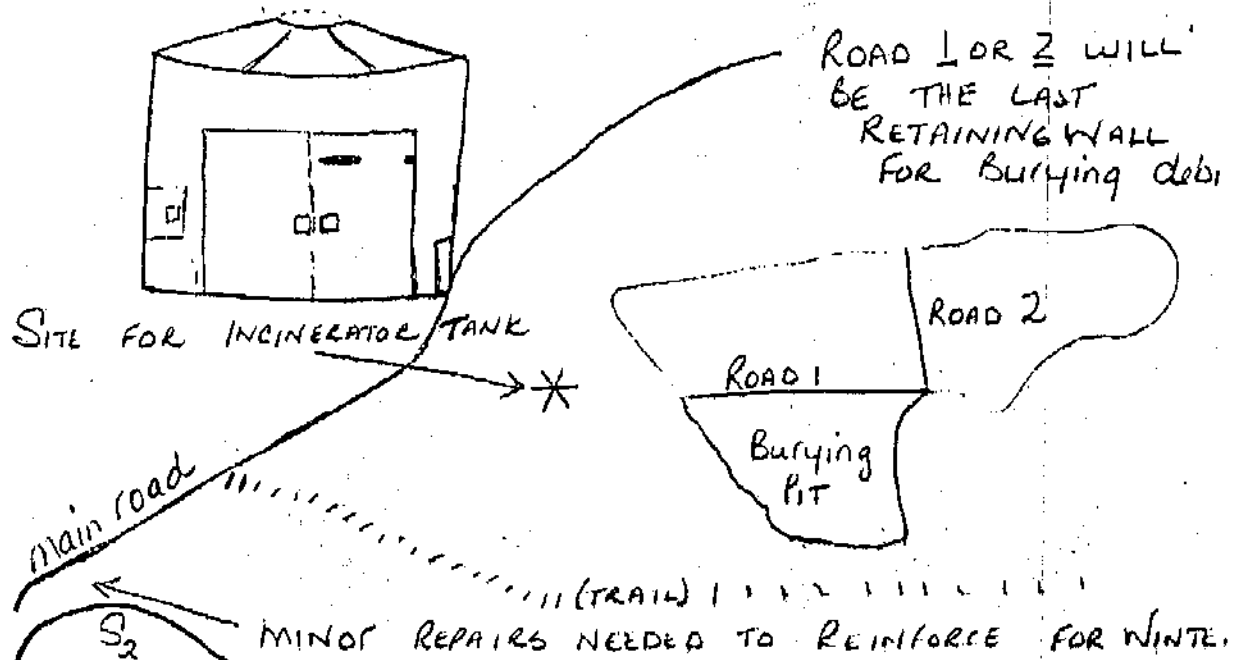 ROAD 1 OR 2 WILL
BE THE LAST
RETAINING WALL
FOR Burying
SITE FOR INCINERATOR TANK
ROAD 2
ROAD 1
Burying
PIT
main road
(TRAIL)
S2
MINOR REPAIRS NEEDED TO REINFORCE FOR